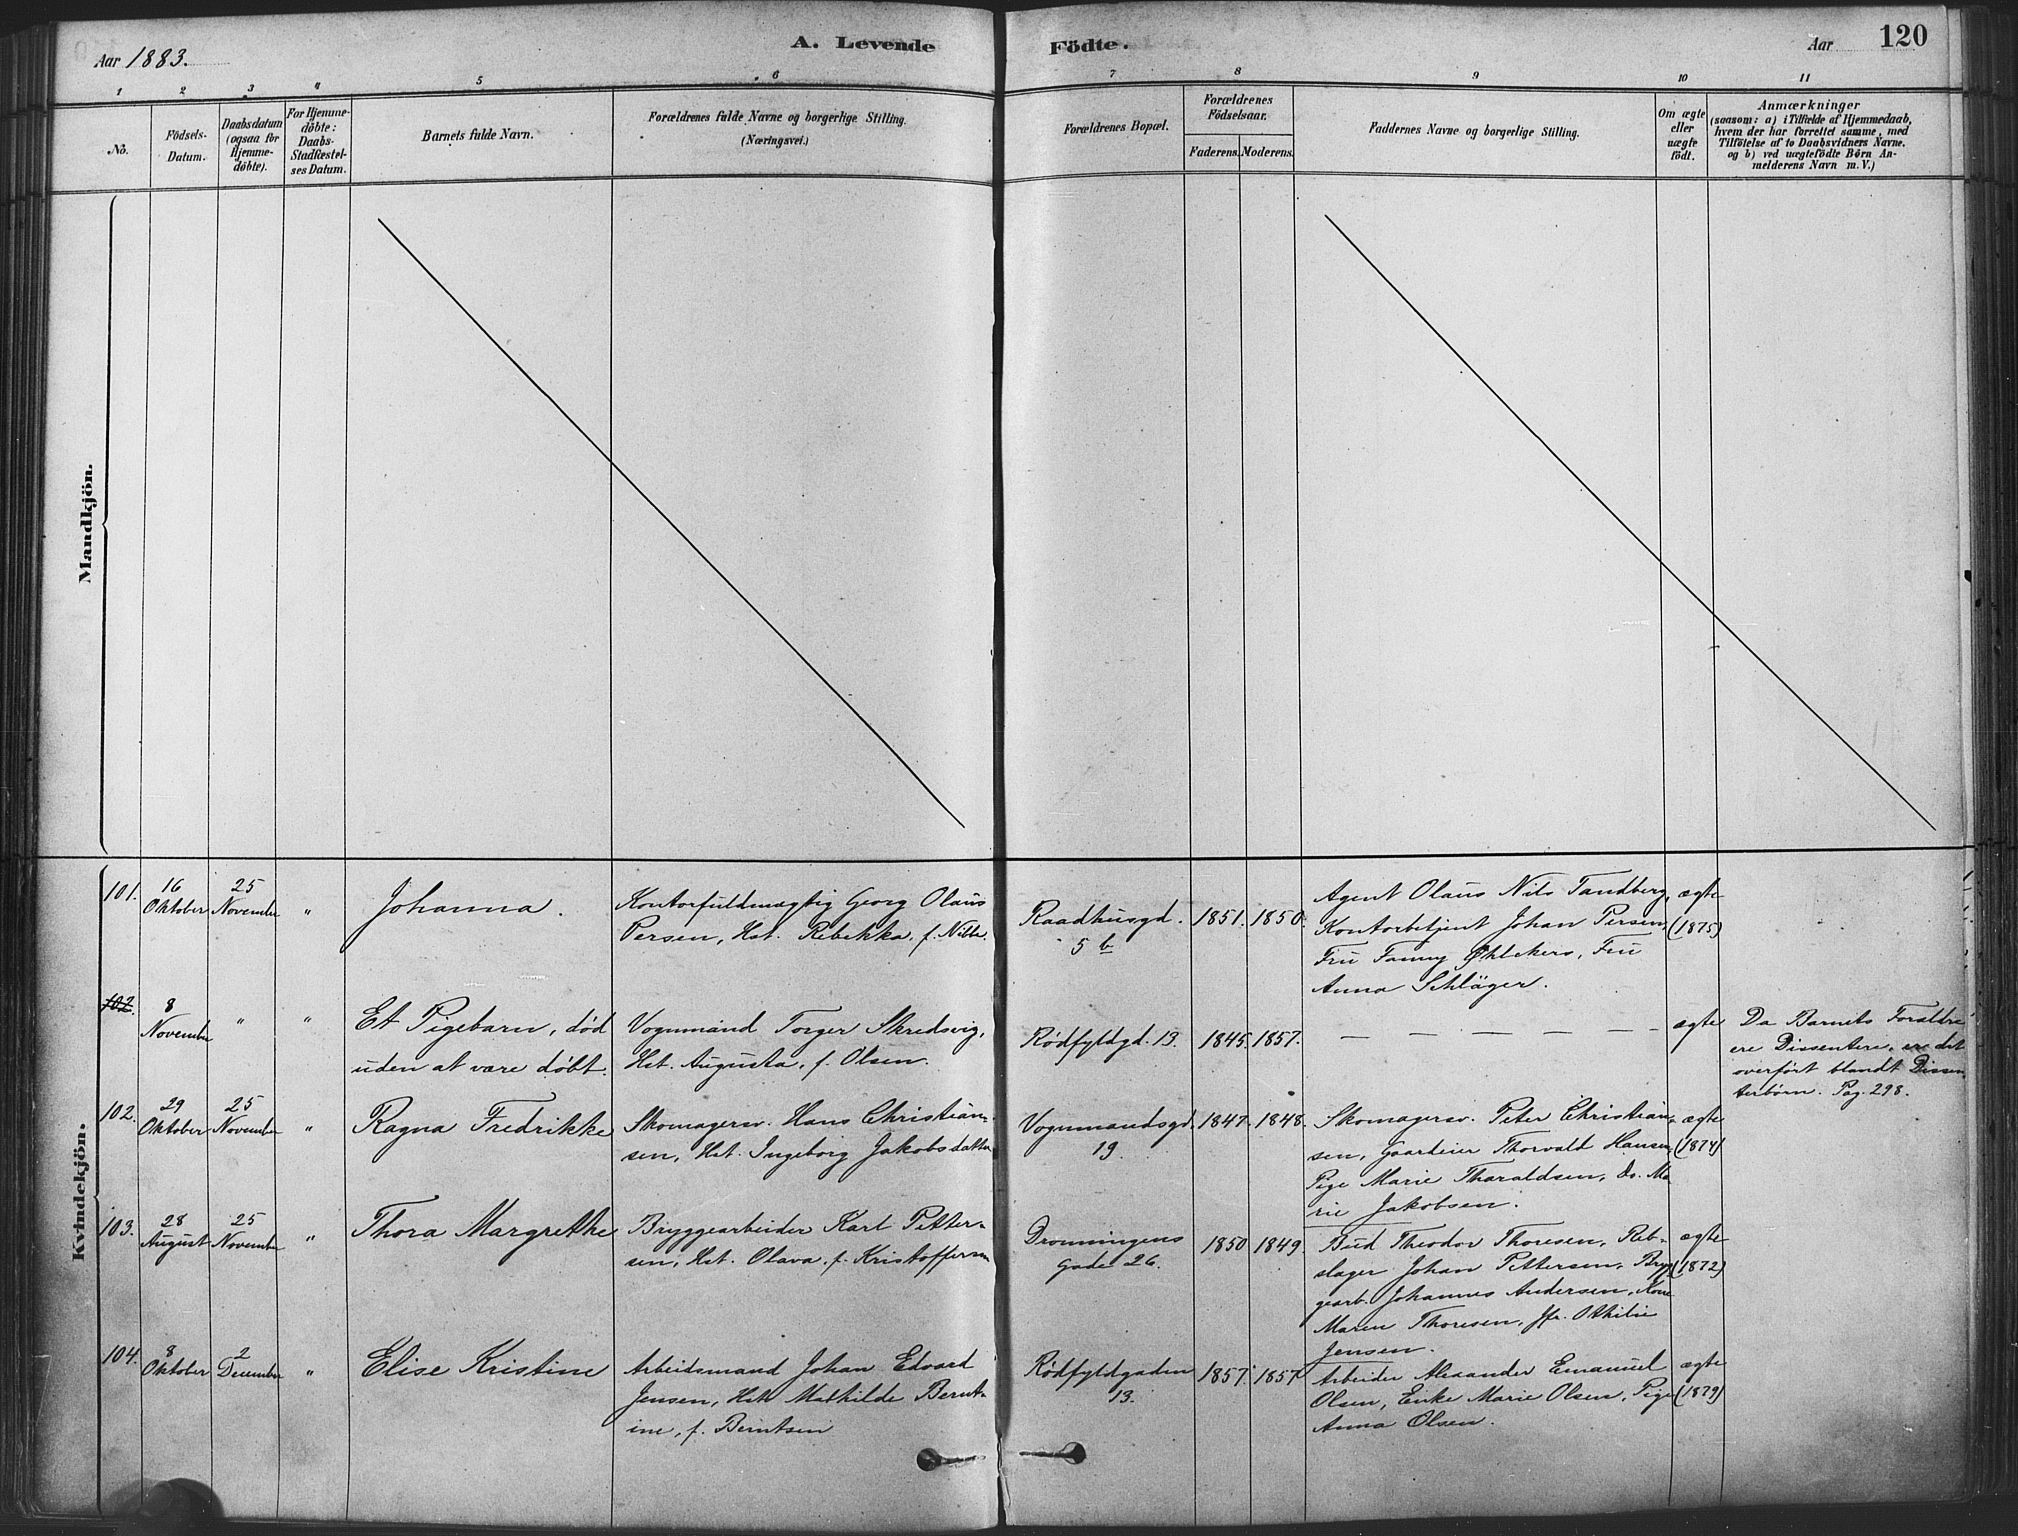 Aar 1883.
A. Levende Födte.
Aar
120
1 2 3 4 5 6 7 8 9 10 11
No.
Födsels-
Datum.
Daabsdatum
(ogsaa for
Hjemme-
döbte).
For Hjemme-
döbte:
Daabs-
Stadfæstel-
ses Datum.
Barnets fulde Navn.
Forældrenes fulde Navne og borgerlige Stilling.
(Næringsvei.)
Forældrenes Bopæl.
Forældrenes
Födselsaar.
Faderens. Moderens.
Faddernes Navne og borgerlige Stilling.
Om ægte
eller
uægte
födt.
Anmærkninger
(saasom: a) i Tilfælde af Hjemmedaab,
hvem der har forrettet samme, med
Tilföielse af to Daabsvidners Navne.
og b) ved uægtefödte Börn An-
melderens Navn m. V.)
Mandkjön.
Kvindekjön.
101.
16
Oktober
25
November
"
Johanna.
Kontorfuldmægtig Georg Olaus
Persen, Hst. Rebekka, f.
Raadhusgd.
5 b
1851. 1850.
Agent Olaus Nils Tandberg,
Kontorbetjent Johan Persen,
Fru Fanny Øhlckers, Fru
Anna Schläger.
ægte
(1875)
102.
8
November
"
"
Et Pigebarn, død
uden at være døbt.
Vognmand Torger Skredsvig,
Hst. Augusta, f. Olsen.
Rødfyldgd. 13.
1845. 1857.
— — — — —
ægte
Da Barnets Forældre
ere Dissentere, er det
overført blandt Dissen-
terbørn. Pag. 298.
102.
29
Oktober
25
November
"
Ragna Fredrikke
Skomagersv. Hans Christian-
sen, Hst. Ingeborg Jakobsdatter
Vognmandsgd.
19.
1847. 1848.
Skomagersv. Peter Christian-
sen, Gaardeier Thorvald Hansen,
Pige Marie Tharaldsen, Do. Ma-
rie Jakobsen.
ægte
(1874)
103.
28
August
25
November
"
Thora Margrethe
Bryggearbeider Karl Petter-
sen, Hst. Olava, f. Kristoffersen
Dronningens
Gade 26.
1850 1849.
Bud Theodor Thoresen, Reb-
slager Johan Pettersen, Bryg-
gearb. Johannes Andersen, Kone
Maren Thoresen, Jfr. Othilie
Jensen.
ægte
(1872)
104.
8
Oktober
2
December
"
Elise Kristine
Arbeidsmand Johan Edvard
Jensen, Hst. Mathilde Bernt-
ine, f. Berntsen
Rødfyldgaden
13.
1857. 1857
Arbeider Alexander Emanuel
Olsen, Enke Marie Olsen, Pige
Anna Olsen.
ægte
(1879)